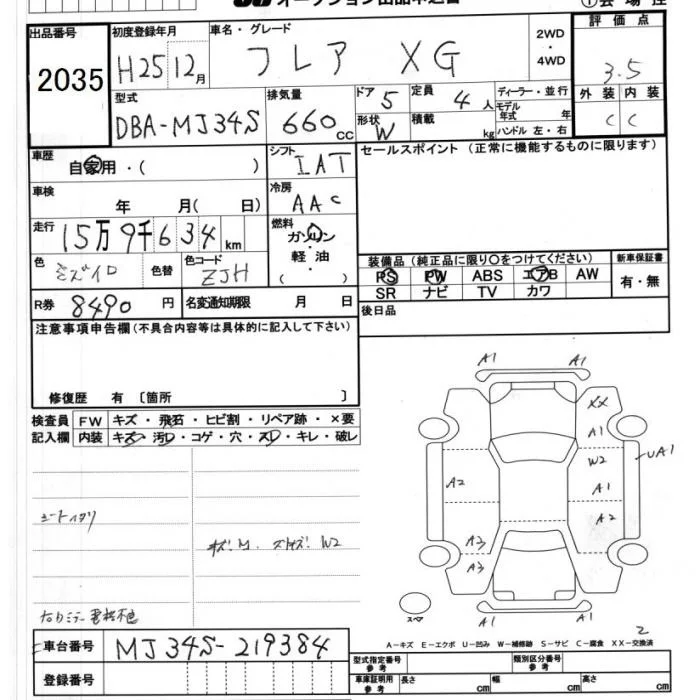 オークション出品申込書
出品番号 初度登録年月 車名・グレード 2WD・4WD 評価点
2035 H25 12月 フレア XG 3.5
型式 排気量 ドア 5 定員 4人 ディーラー・並行 外装 内装
DBA-MJ34S 660cc 形状 W 積載 kg モデル年式 年 C C
ハンドル 左・右
車歴 自家用・( ) シフト IAT セールスポイント(正常に機能するものに限ります)
車検 年 月( 日) 冷房 AAC
走行 15万9千634km 燃料 ガソリン・軽油・( )
色 ミズイロ 色替 色コード ZJH
装備品(純正品に限り○をつけてください) 新車保証書
PS PW ABS エアB AW 有・無
SR ナビ TV カワ
R券 8490円 名変通知期限 月 日 後日品
注意事項申告欄(不具合内容等は具体的に記入して下さい)
修復歴 有〔箇所 〕
検査員 FW キズ・飛石・ヒビ割・リペア跡・×要
記入欄 内装 キズ・汚レ・コゲ・穴・スレ・キレ・破レ
A1 A1
XX
A1
W2 UA1
A2 A1
A2
A3
A3
A1 A1
スペア
2
A-キズ E-エクボ U-凹み W-補修跡 S-サビ C-腐食 XX-交換済
車台番号 MJ34S-219384
登録番号
型式指定番号 参考 類別区分番号 参考
車庫証明用 参考 長さ cm 幅 cm 高さ cm